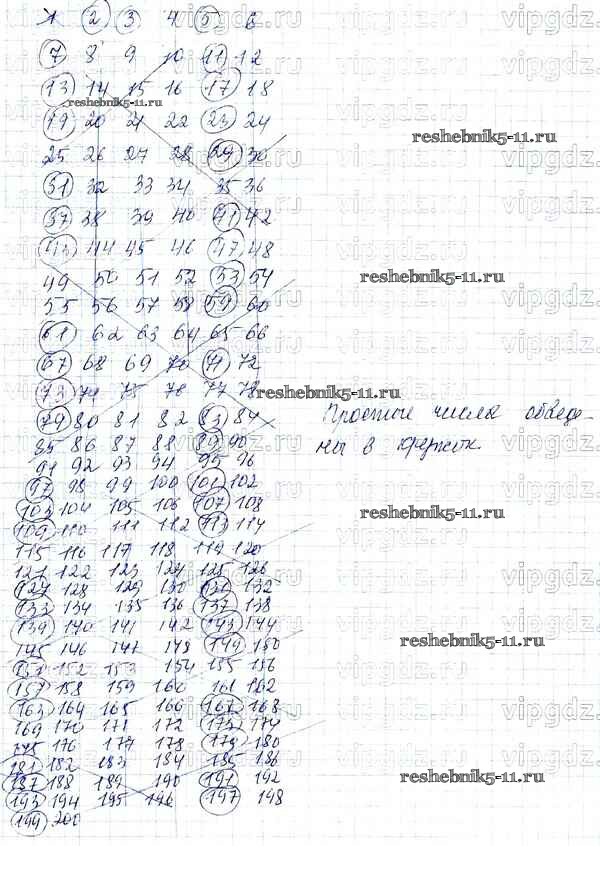 1 2 3 4 5 6
7 8 9 10 11 12
13 14 15 16 17 18
reshebnik5-11.ru
19 20 21 22 23 24
reshebnik5-11.ru
25 26 27 28 29 30
31 32 33 34 35 36
37 38 39 40 41 42
43 44 45 46 47 48
49 50 51 52 53 54
reshebnik5-11.ru
55 56 57 58 59 60
61 62 63 64 65 66
67 68 69 70 71 72
73 74 75 76 77 78
reshebnik5-11.ru
79 80 81 82 83 84
Простые числа обведе-
85 86 87 88 89 90
ны в кружок.
91 92 93 94 95 96
97 98 99 100 101 102
103 104 105 106 107 108
reshebnik5-11.ru
109 110 111 112 113 114
115 116 117 118 119 120
121 122 123 124 125 126
127 128 129 130 131 132
133 134 135 136 137 138
139 140 141 142 143 144
reshebnik5-11.ru
145 146 147 148 149 150
151 152 153 154 155 156
157 158 159 160 161 162
163 164 165 166 167 168
169 170 171 172 173 174
175 176 177 178 179 180
181 182 183 184 185 186
187 188 189 190 191 192
reshebnik5-11.ru
193 194 195 196 197 198
199 200
vipgdz.ru